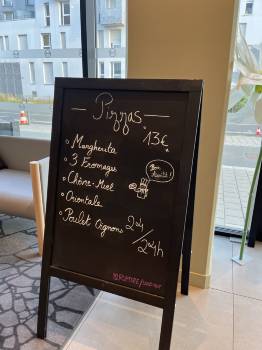 Pizzas
13€
• Margherita
• 3 Fromages
• Chèvre-Miel
• Orientale
• Poulet Oignons
24h/24h